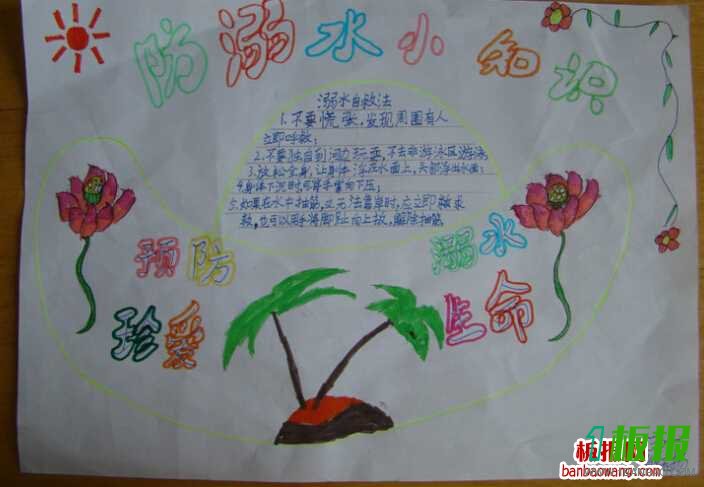 防溺水小知识
溺水自救法
1、不要慌张,发现周围有人
立即呼救;
2、不要独自到河边玩耍,不去非游泳区游泳
3、放松全身,让身体浮在水面上,头部浮出水面;
4、身体下沉时,可将手掌向下压;
5、如果在水中抽筋,又无法靠岸时,应立即求
救,也可以用手将脚趾向上拔,解除抽筋
预防 溺水
珍爱 生命
1板报
板报网
banbaowang.com